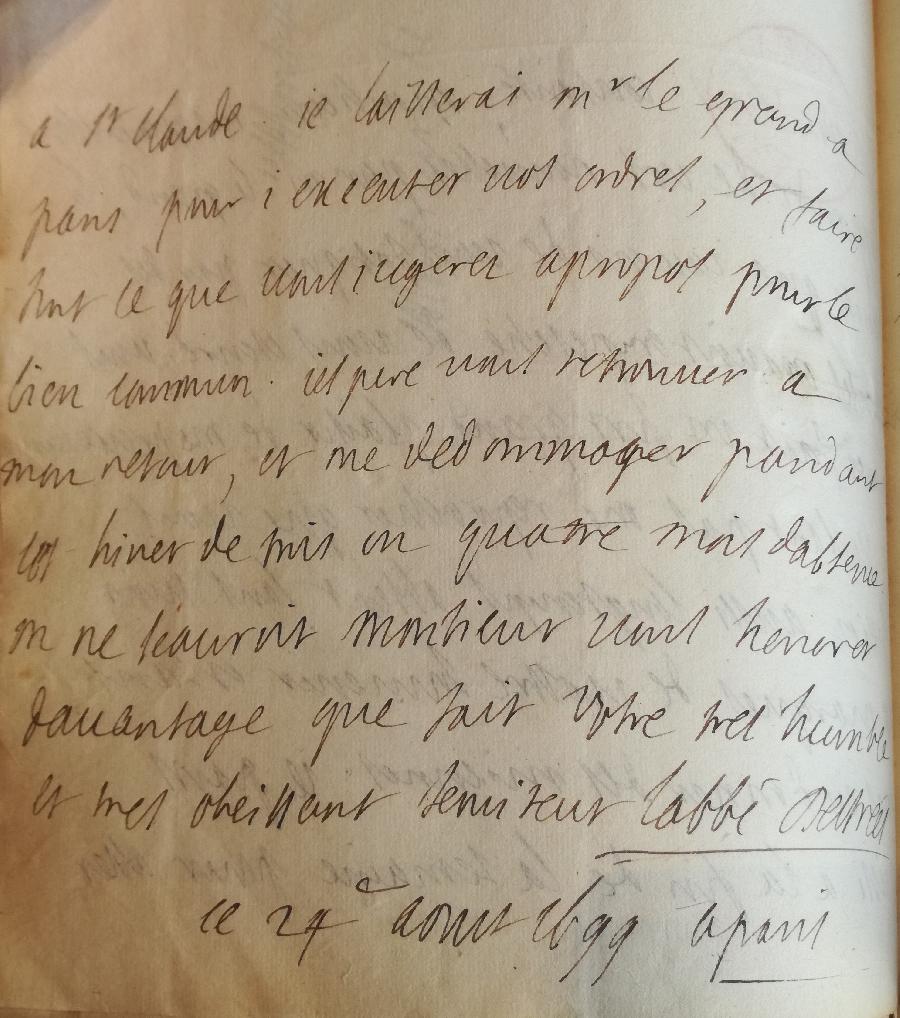 a st claude. ie laisserai mr le grand a
paris pour i executer vos ordres, et faire
tout ce que vous iugeres apropos pour le
bien commun. iespere vous retrouver a
mon retour, et me dedommager pandant
cet hiver de trois ou quatre mois dabsence
on ne scauroit monsieur vous honorer
davantage que fait votre tres humble
et tres obeissant serviteur labbé destrées
ce 24e aoust 1699 a paris